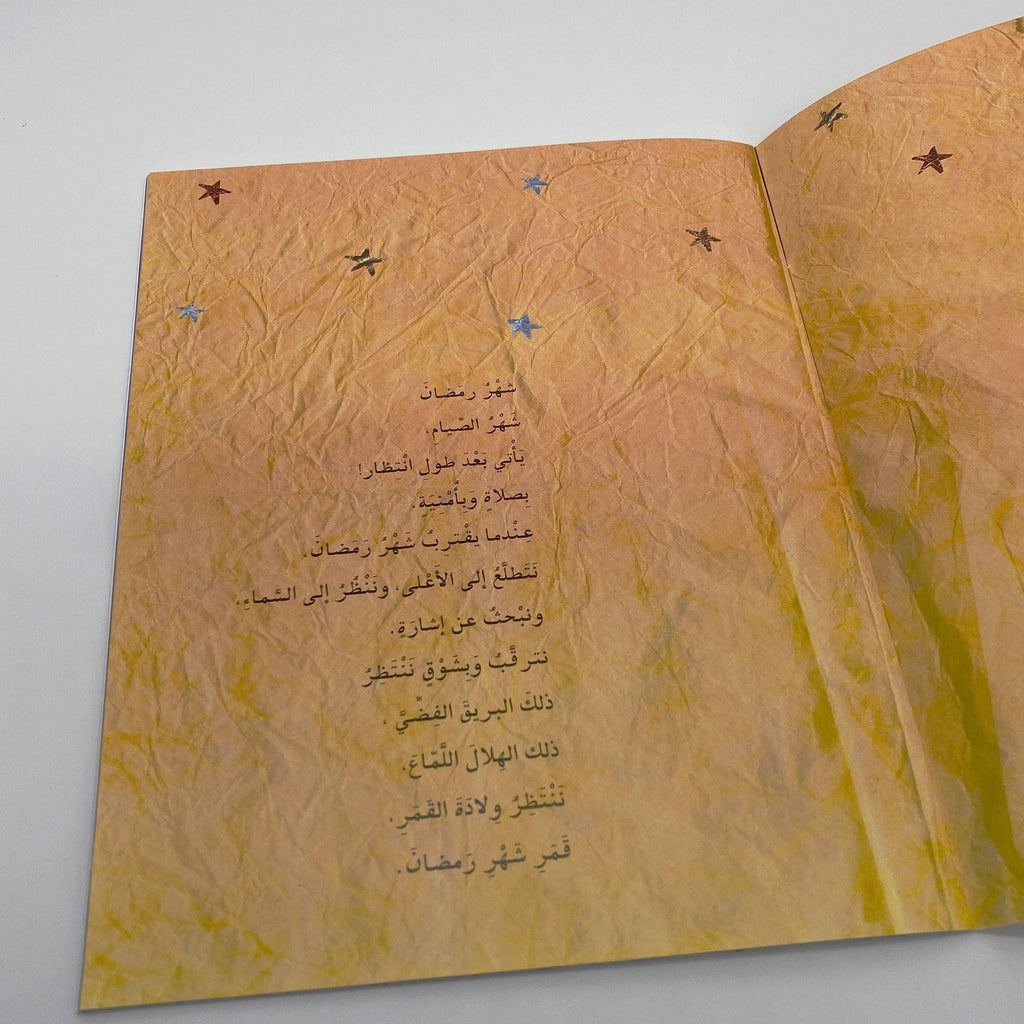 شهْرُ رمَضانَ
شَهْرُ الصّيامِ،
يَأْتي بَعْدَ طولِ انْتِظار!
بِصلاةٍ وَبِأُمْنِيَةٍ.
عِنْدما يقْترِبُ شَهْرُ رَمَضانَ،
نَتَطلَّعُ إلى الأَعْلى، ونَنْظُرُ إلى السَّماءِ،
ونبْحثُ عن إشارَةٍ.
نترقَّبُ وَبِشَوْقٍ نَنْتَظِرُ
ذلكَ البريقَ الفِضّيَّ،
ذلك الهِلالَ اللَّمّاعَ،
نَنْتَظِرُ وِلادَةَ القَمَرِ،
قَمَرِ شَهْرِ رَمضانَ.